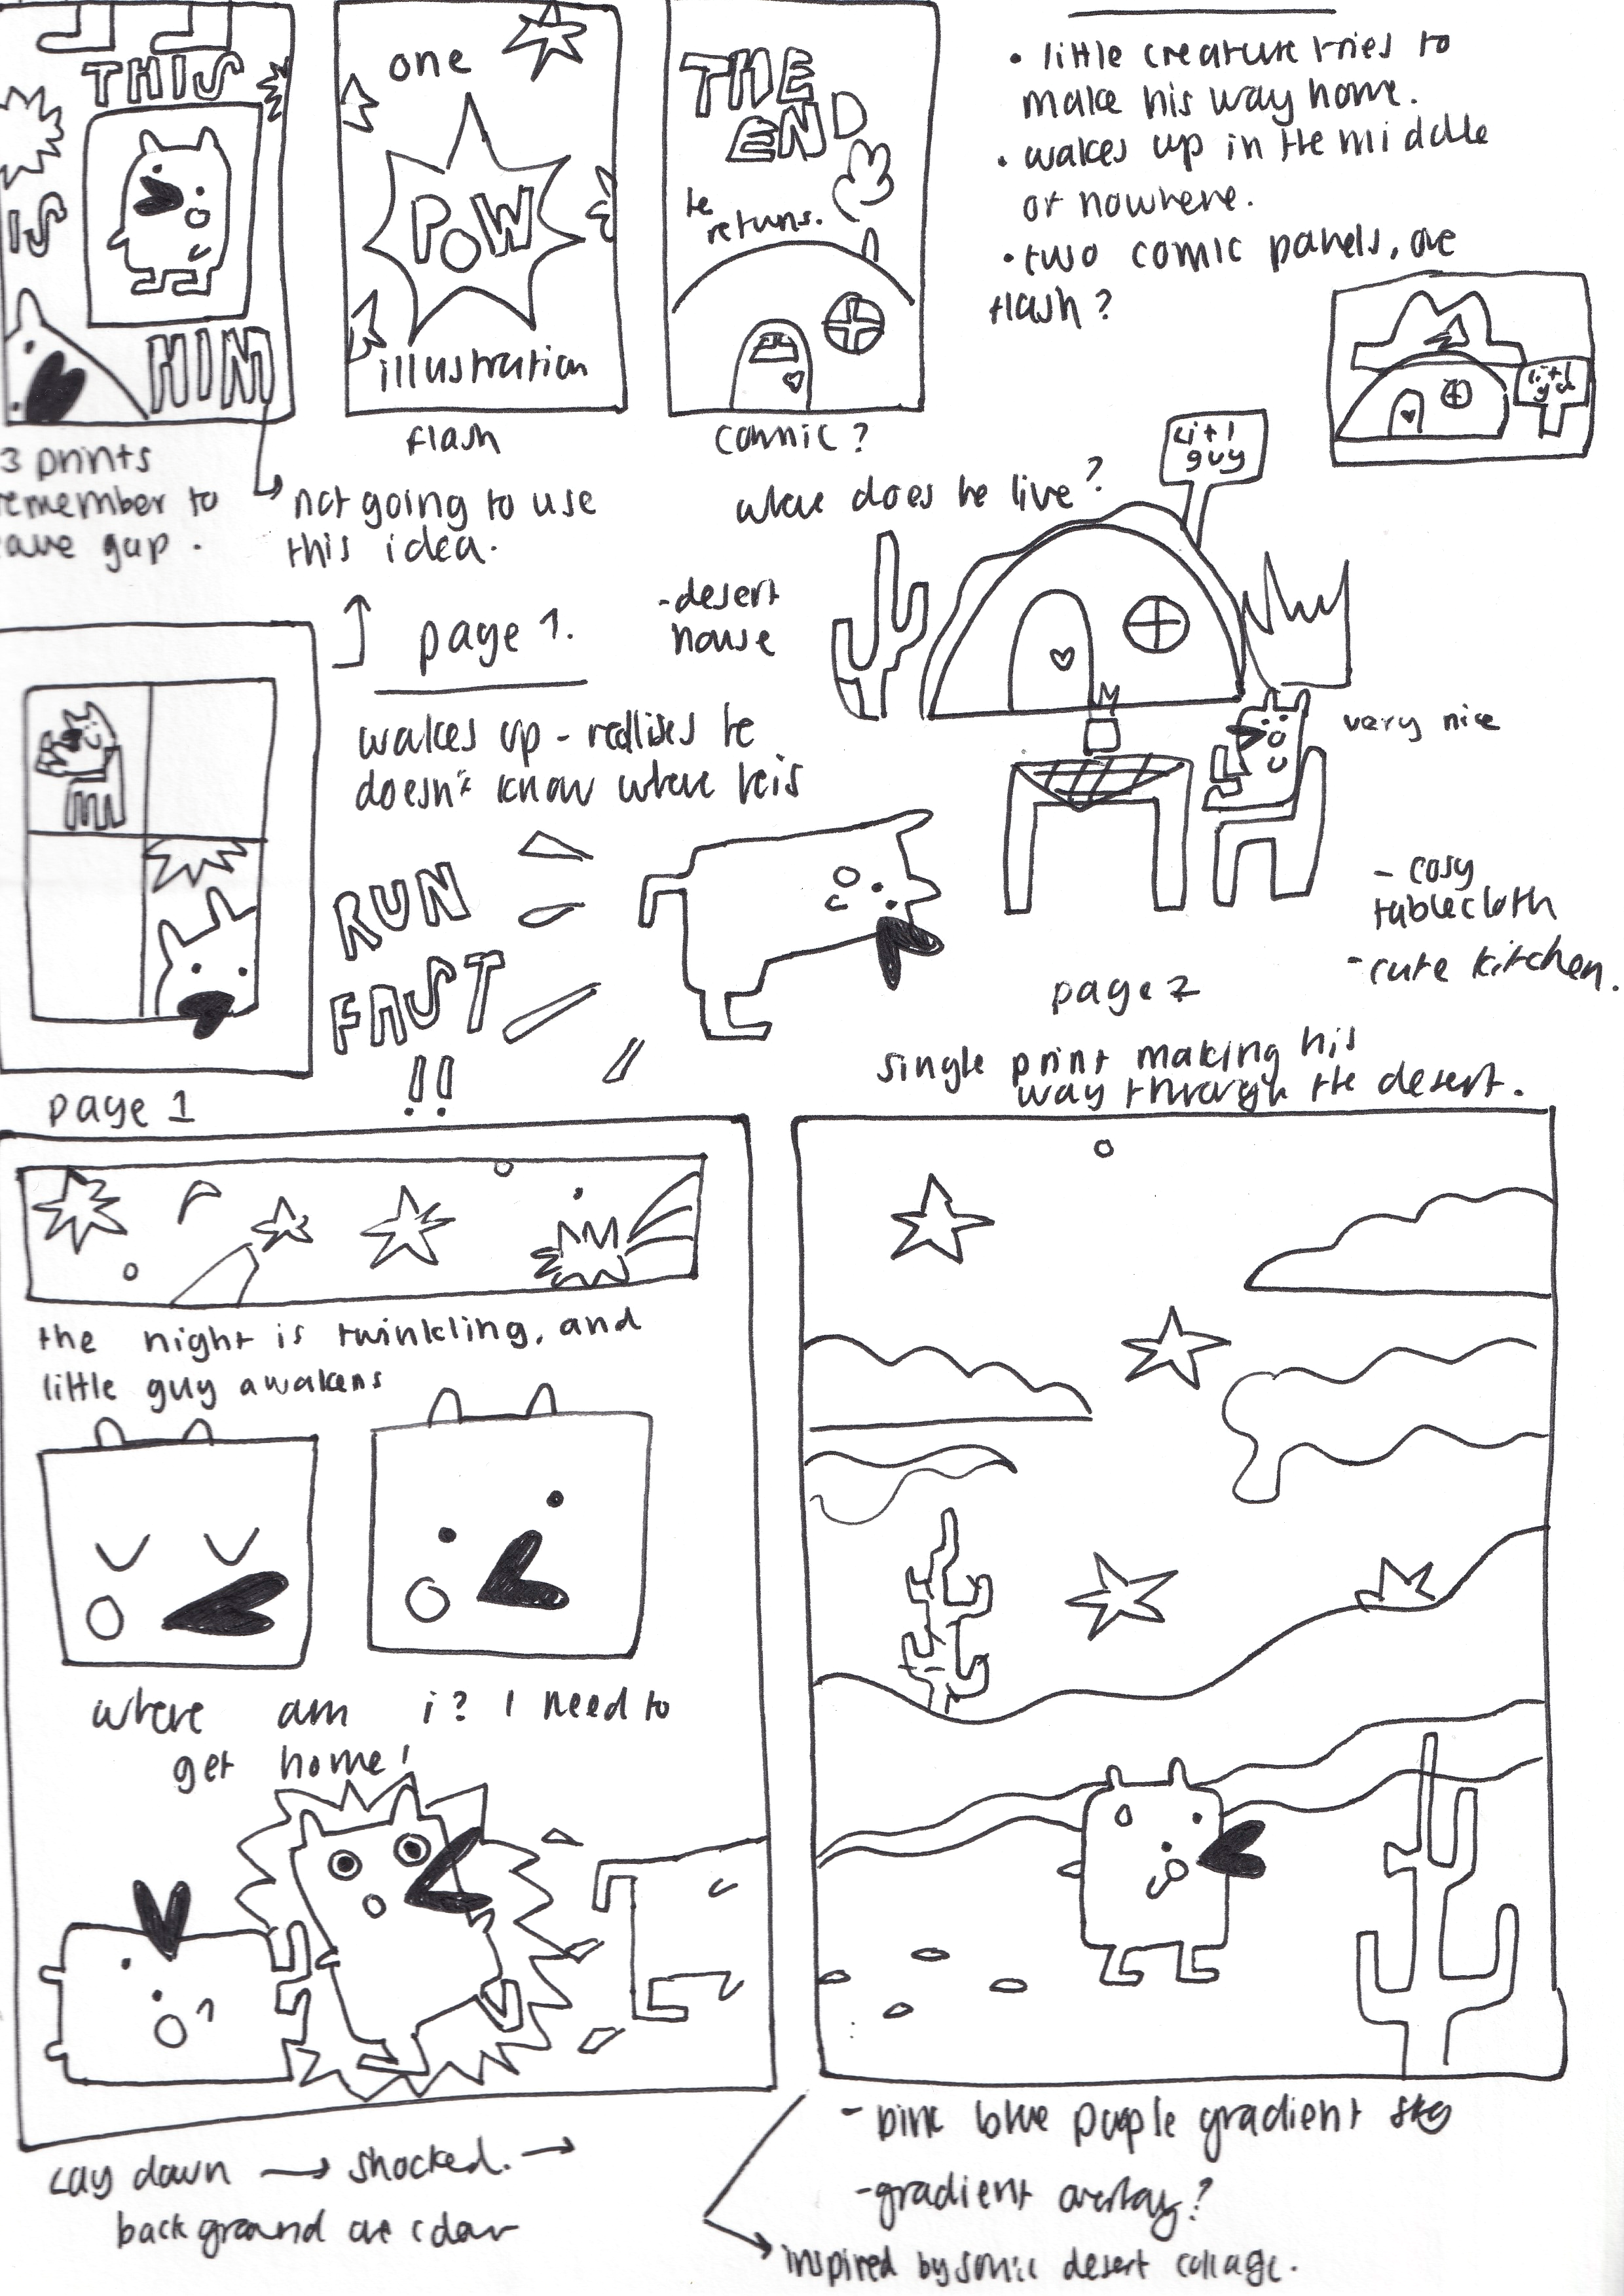 THIS
IS
HIM
one
POW
illustration
THE
END
he
returns.
• little creature tries to
make his way home.
• wakes up in the middle
of nowhere.
• two comic panels, one
flash?
3 prints
remember to
gap.
not going to use
this idea.
flash
comic?
where does he live?
litl
guy
litl
- desert
house
page 1.
wakes up - realises he
doesn't know where he is
very nice
- cosy
tablecloth
- cute kitchen.
RUN
FAST
!!
page 1
page 2
single print making his
way through the desert.
the night is twinkling, and
little guy awakens
where am i? I need to
get home!
lay down → shocked. →
background one
- pink blue purple gradient sky
- gradient overlay?
inspired by sonic desert collage.